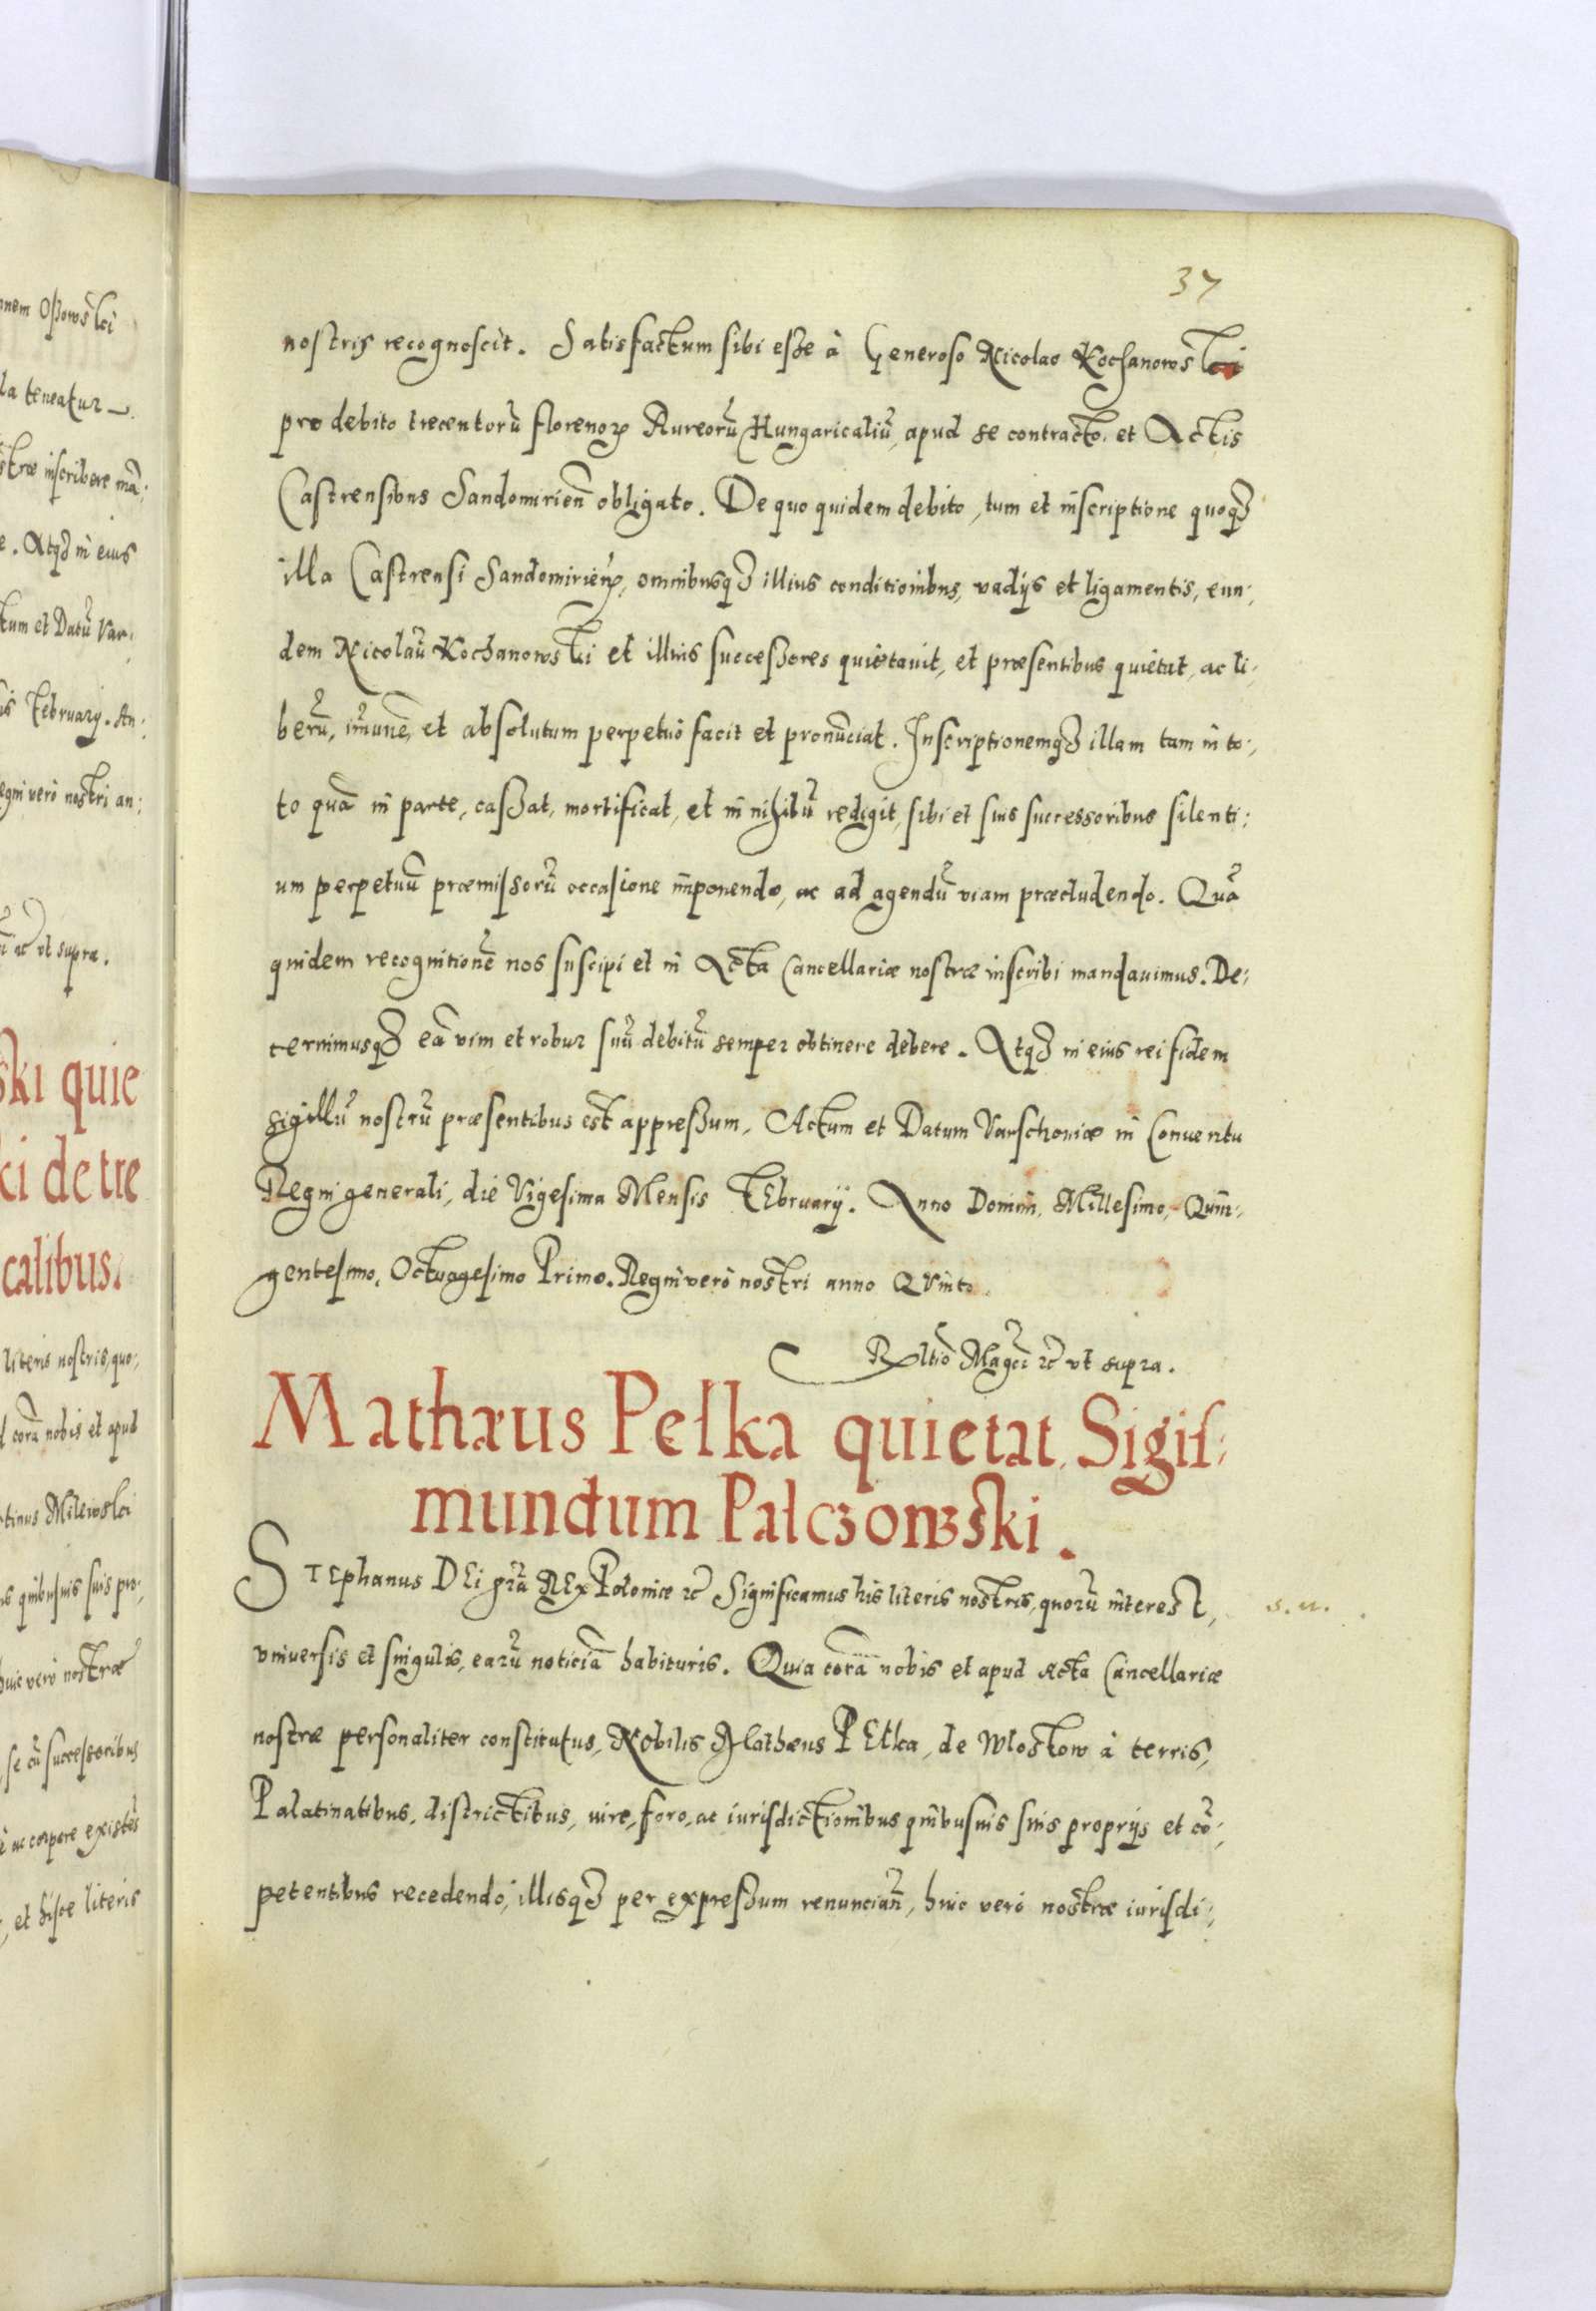 onem Oßowski
la teneatur
stræ inscribere mã:
e. Atqȝ in eius
tum et Datũ Var:
is Februarij. An:
egni verò nostri an:
ut supra.
ski quie
ki de tre
calibus.
literis nostris, quo:
corã nobis et apud
tinus Milewski
quibusuis suis pro:
huic verò nostræ
se cũ successoribus
ac corpore existẽs
et hisce literis
37
nostris recognoscit. Satisfactum sibi eße à Generoso Nicolao Kochanowski
pro debito trecentorũ florenoꝝ Aureorũ Hungaricaliũ, apud se contracto, et Actis
Castrensibus Sandomirieñ obligato. De quo quidem debito, tum et inscriptione quoqȝ
illa Castrensi Sandomirieñ, omnibusqȝ illius conditionibus, vadijs et ligamentis, eun:
dem Nicolaũ Kochanowski et illius succeßores quietauit, et præsentibus quietat, ac li:
berũ, im̃unẽ, et absolutum perpetuò facit et pronũciat. Inscriptionemqȝ illam tam in to:
to quã in parte, caßat, mortificat, et in nihilũ redigit, sibi et suis successoribus silenti:
um perpetuũ præmissorũ occasione imponendo, ac ad agendũ viam præcludendo. Quã
quidem recognitionẽ nos suscipi et in Acta Cancellariæ nostræ inscribi mandauimus. De:
cernimusqȝ eã vim et robur suũ debitũ semper obtinere debere. Atqȝ in eius rei fidem
sigillũ nostrũ præsentibus est appreßum. Actum et Datum Varschouiæ in Conuentu
Regni generali, die Vigesima Mensis FEbruarij. Anno Domini, Millesimo, Quin:
gentesimo, Octuagesimo Primo. Regni verò nostri anno QVinto.
Rltio Magci ꝛc̃ ut supra.
Mathæus Pełka quietat Sigis:
mundum Pałczowski.
STEphanus DEi grã REx Poloniæ ꝛc̃ Significamus his literis nostris, quorũ interest,
vniuersis et singulis, earũ noticiã habituris. Quia corã nobis et apud Acta Cancellariæ
s. n.
nostræ personaliter constitutus, Nobilis Mathæus PEłka, de Włostow à terris,
Palatinatibus, districtibus, iure, foro, ac iurisdictionibus quibusuis suis proprijs et cõ:
petentibus recedendo, illisqȝ per expreßum renunciañ, huic verò nostræ iurisdi: